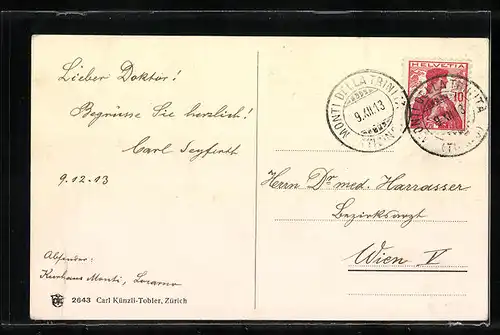 Lieber Doktor!
Begrüsse Sie herzlich!
Carl Seyferth
9.12.13
Absender:
Kurhaus Monti, Locarno
2643 Carl Künzli-Tobler, Zürich
HELVETIA
10
MONTI DELLA TRINITA
9.XII.13
(TICINO)
MONTI DELLA TRINITA
9.XII.13
Herrn Dr med. Harrasser
Bezirksarzt
Wien V